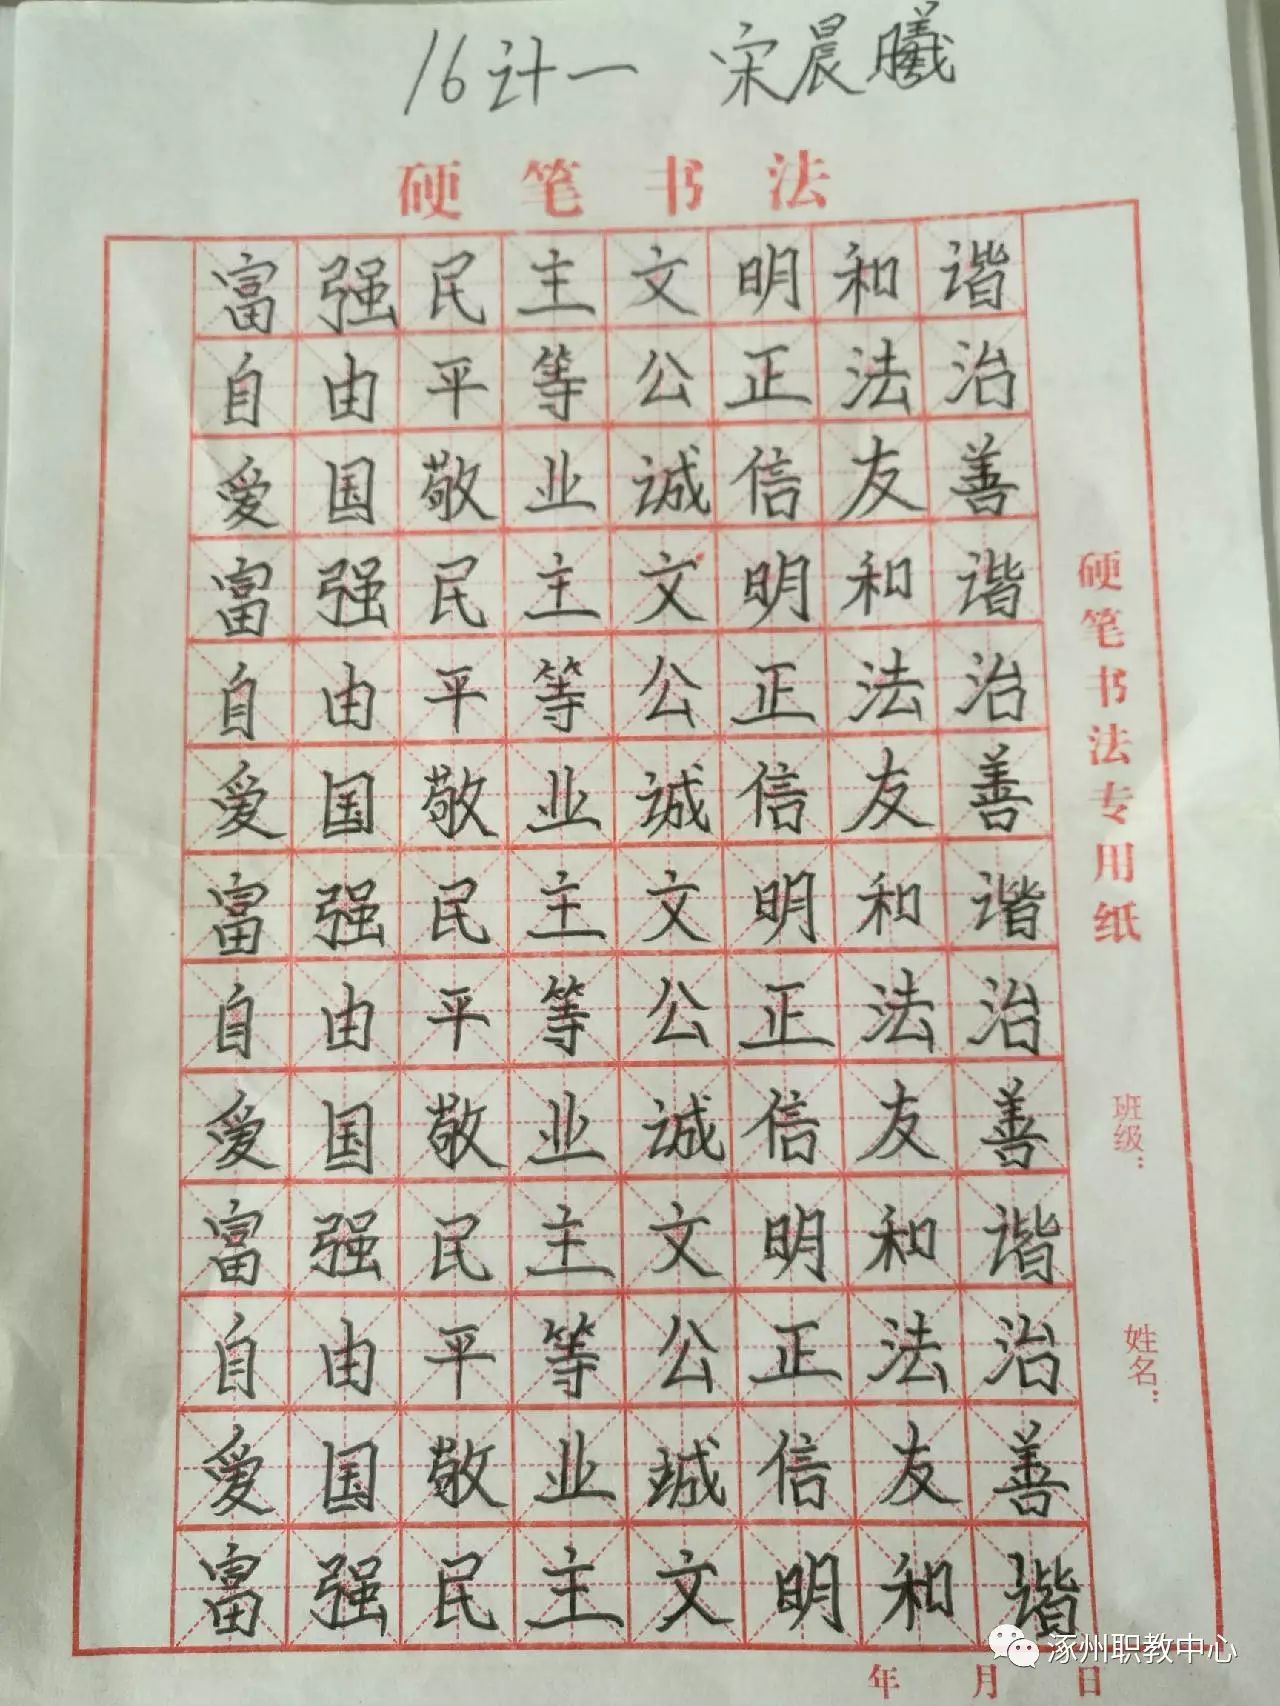 16计一 宋晨曦
硬笔书法
富强民主文明和谐
自由平等公正法治
爱国敬业诚信友善
富强民主文明和谐
自由平等公正法治
爱国敬业诚信友善
富强民主文明和谐
自由平等公正法治
爱国敬业诚信友善
富强民主文明和谐
自由平等公正法治
爱国敬业诚信友善
富强民主文明和谐
硬笔书法专用纸
班级：
姓名：
年 月 日
涿州职教中心